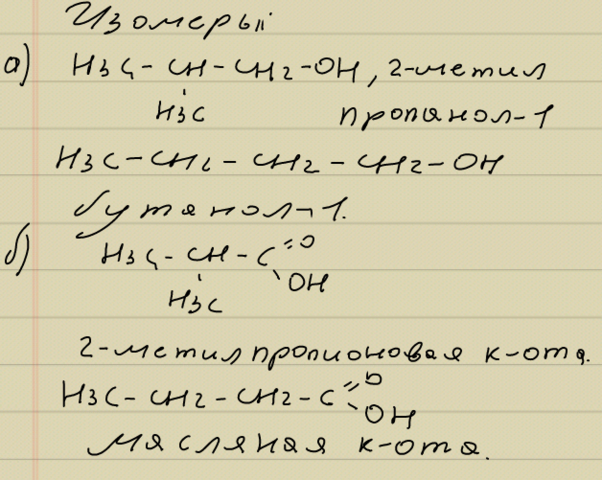 Изомеры
а) H3C-CH-CH2-OH, 2-метил
H3C пропанол-1
H3C-CH2-CH2-CH2-OH
бутанол-1.
б) H3C-CH-C=O
OH
H3C
2-метилпропионовая к-ота.
H3C-CH2-CH2-C=O
OH
масляная к-ота.